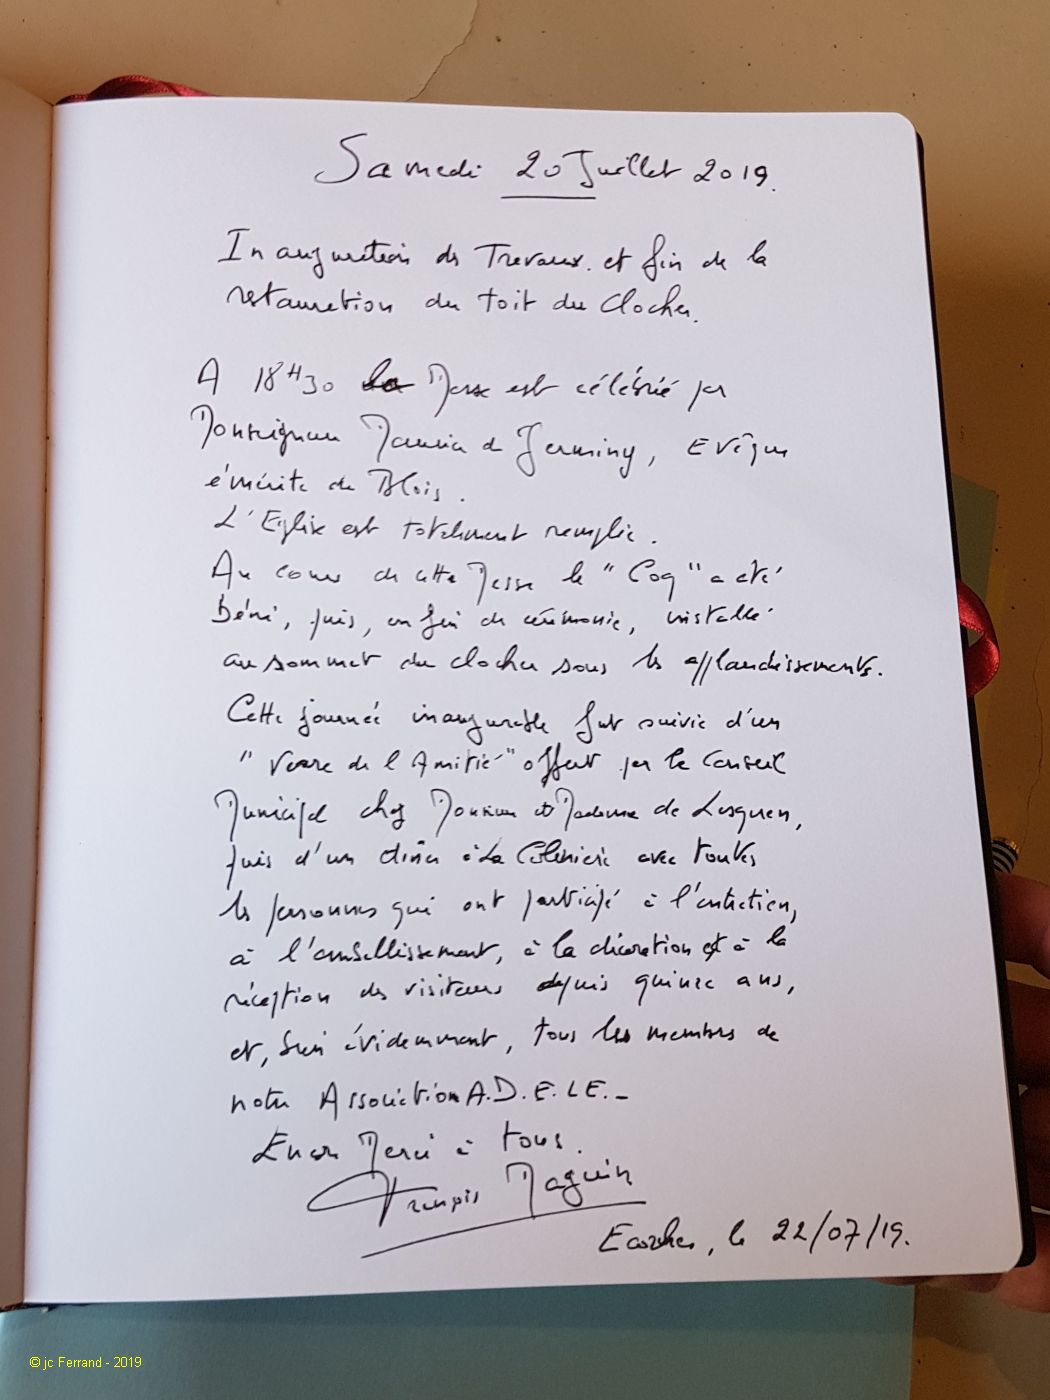 Samedi 20 Juillet 2019.
Inauguration des Travaux. et fin de la
restauration du toit du Clocher.
A 18H30 la Messe est célébrée par
Monseigneur Maurice de Germiny, Evêque
émérite de Blois.
L'Eglise est totalement remplie.
Au cours de cette Messe le "Coq" a été
béni, puis, en fin de cérémonie, installé
au sommet du clocher sous les applaudissements.
Cette journée inaugurale fut suivie d'un
"Verre de l'Amitié" offert par le Conseil
Municipal chez Monsieur et Madame de Lesquen,
puis d'un dîner à La avec toutes
les personnes qui ont participé à l'entretien,
à l'embellissement, à la décoration et à la
réception des visiteurs depuis quinze ans,
et, bien évidemment, tous les membres de
notre Association A.D.E.L.E. -
Encore Merci à tous.
François Maguin
Ecoches, le 22/07/19.
© jc Ferrand - 2019